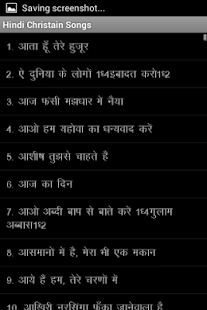 Saving screenshot...
Hindi Christain Songs
1. आता हूँ तेरे हुजूर
2. ऐ दुनिया के लोगों 1ध4इबादत करो1ध2
3. आज फंसी मझधार में नैया
4. आओ हम यहोवा का धन्यवाद करें
5. आशीष तुझसे चाहते हैं
6. आज का दिन
7. आओ अब्दी बाप से बाते करें 1ध4गुलाम
अब्बास1ध2
8. आसमानो में है, मेरा भी एक मकान
9. आये हैं हम, तेरे चरणों में
10. आखिरी नरसिंगा फूँका जानेवाला है